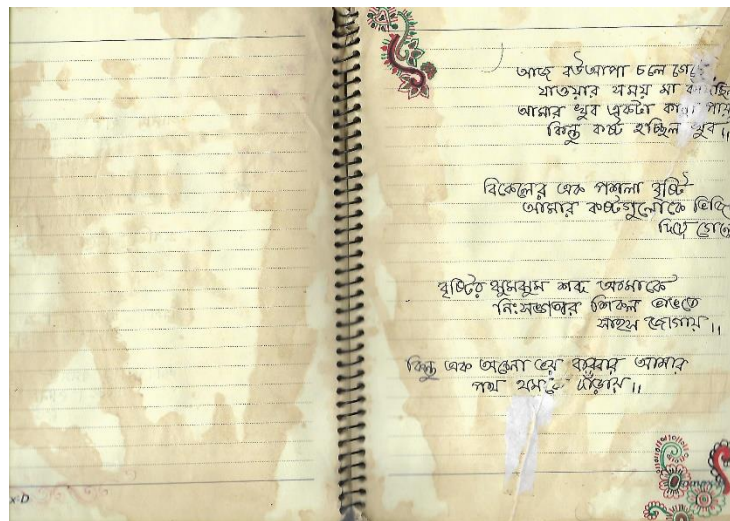 আজ বউআপা চলে গেছে
যাওয়ার সময় মা ক
আমার খুব একটা কান্না পায়
কিন্তু কষ্ট হচ্ছিল খুব।।
বিকেলের এক পশলা বৃষ্টি
আমার কষ্টগুলোকে ভিজি
দিয়ে গেলো
বৃষ্টির ঝুমঝুম শব্দ আমাকে
নিঃসঙ্গতার শিকল ভাঙতে
সাহস জোগায়।।
কিন্তু এক অজানা ভয় বারবার আমার
পথ থমকে দাঁড়ায়।।
x D